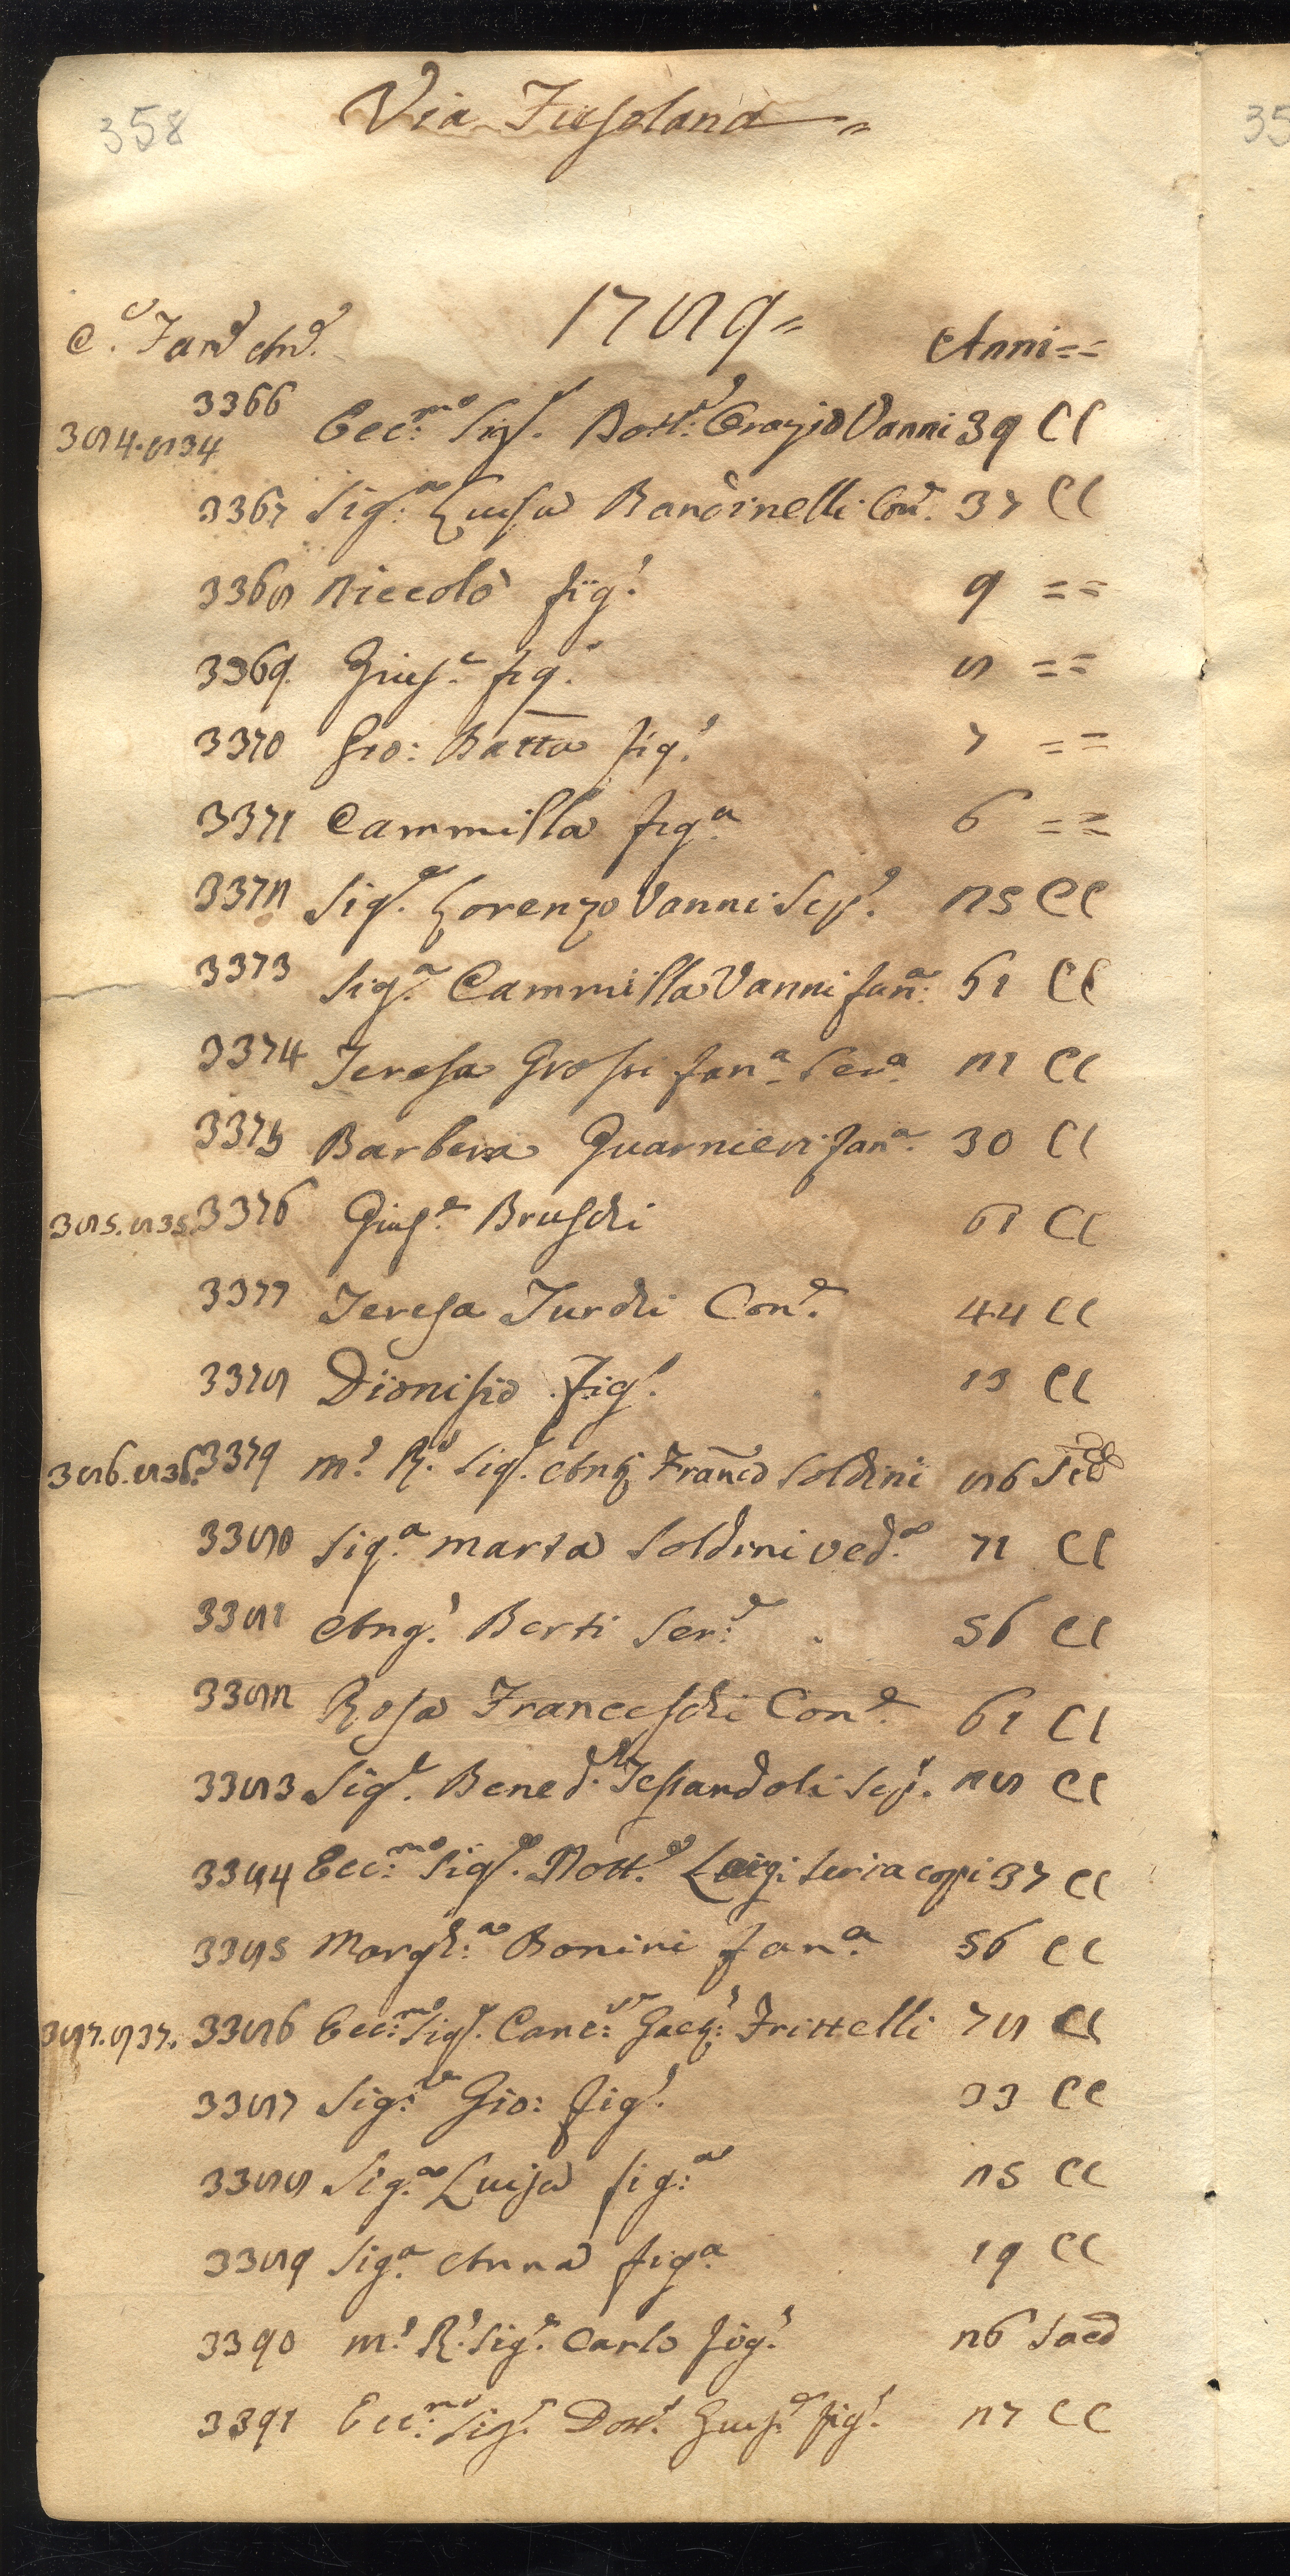 358
Via Fiesolana =
1789 =
C.e Fam.e An.e Anni = =
384.834 3366 Ecc.mo Sig.r Dott.e Orazio Vanni 39 CC
3367 Sig.a Luisa Bandinelli Con.e 37 CC
3368 Niccolò fig.o 9 = =
3369 Gius.e fig.o 8 = =
3370 Gio: Batta fig.o 7 = =
3371 Cammilla fig.a 6 = =
3372 Sig.r Lorenzo Vanni Sco.o 25 CC
3373 Sig.a Cammilla Vanni fan.a 61 CC
3374 Teresa Grossi fan.a Ser.a 21 CC
3375 Barbera Guarnieri fan.a 30 CC
385.835. 3376 Gius.e Bruschi 61 CC
3377 Teresa Turchi Con.e 44 CC
3378 Dionisio fig.o 13 CC
386.836. 3379 M.o R.o Sig.r Ant.o Fran.co Soldini 86
3380 Sig.a Marta Soldini ved.a 71 CC
3381 Ang.o Berti Ser.e 56 CC
3382 Rosa Franceschi Con.e 61 CC
3383 Sig.r Bened.o Tessandoli Sco.o 28 CC
3384 Ecc.mo Sig.r Dott.e Luigi 37 CC
3385 Margh.a Bonini fan.a 56 CC
387.837. 3386 Ecc.mo Sig.r Canc.re Frittelli 78 CC
3387 Sig.r Gio: fig.o 33 CC
3388 Sig.a Luisa fig.a 25 CC
3389 Sig.a Anna fig.a 19 CC
3390 M.o R.o Sig.r Carlo fig.o 26 Sacd
3391 Ecc.mo Sig.r Dott.e Gius.e fig.o 27 CC
35